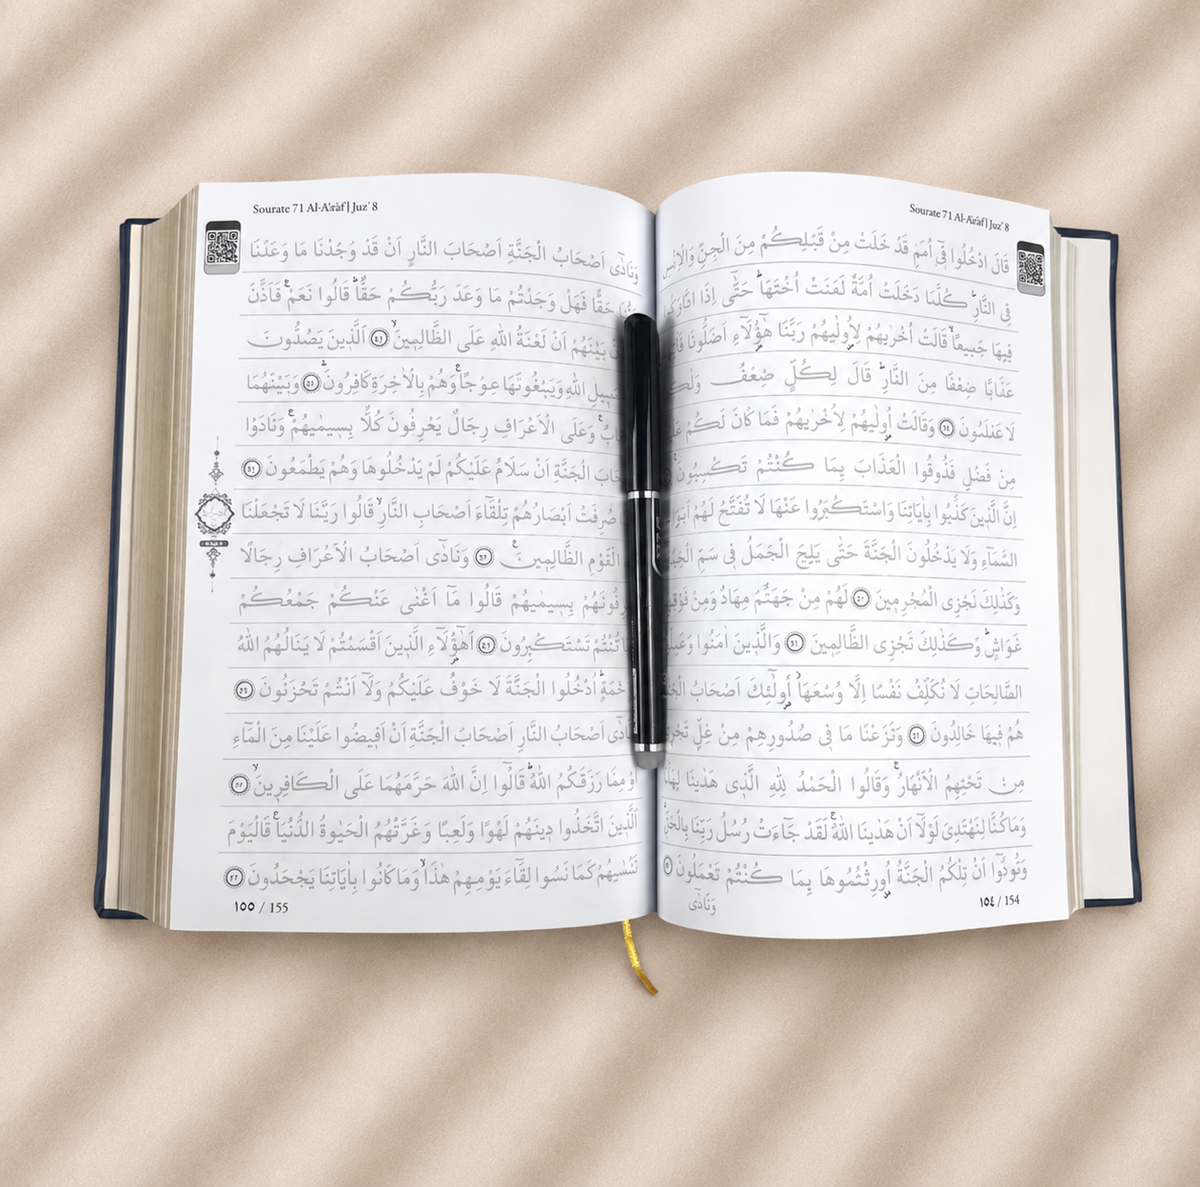 Sourate 71 Al-A'râf | Juz' 8
قَالَ ادْخُلُوا فٓى اُمَمٍ قَدْ خَلَتْ مِنْ قَبْلِكُمْ مِنَ الْجِنِّ وَالْاِنْسِ
فِى النَّارِ كُلَّمَا دَخَلَتْ اُمَّةٌ لَعَنَتْ اُخْتَهَا حَتّٰى اِذَا
فِيهَا جَمِيعًا قَالَتْ اُخْرٰيهُمْ لِاُولٰيهُمْ رَبَّنَا هٰٓؤُلَٓاءِ اَضَلُّونَا
عَذَابًا ضِعْفًا مِنَ النَّارِ قَالَ لِكُلٍّ ضِعْفٌ
لَا تَعْلَمُونَ وَقَالَتْ اُولٰيهُمْ لِاُخْرٰيهُمْ فَمَا كَانَ لَكُمْ
مِنْ فَضْلٍ فَذُوقُوا الْعَذَابَ بِمَا كُنْتُمْ تَكْسِبُونَ
اِنَّ الَّذِينَ كَذَّبُوا بِاٰيَاتِنَا وَاسْتَكْبَرُوا عَنْهَا لَا تُفَتَّحُ لَهُمْ
السَّمَٓاءِ وَلَا يَدْخُلُونَ الْجَنَّةَ حَتّٰى يَلِجَ الْجَمَلُ فِى سَمِّ
وَكَذٰلِكَ نَجْزِى الْمُجْرِمِينَ لَهُمْ مِنْ جَهَنَّمَ مِهَادٌ وَمِنْ
غَوَاشٍ وَكَذٰلِكَ نَجْزِى الظَّالِمِينَ وَالَّذِينَ اٰمَنُوا
الصَّالِحَاتِ لَا نُكَلِّفُ نَفْسًا اِلَّا وُسْعَهَا اُولٰٓئِكَ اَصْحَابُ
هُمْ فِيهَا خَالِدُونَ وَنَزَعْنَا مَا فِى صُدُورِهِمْ مِنْ غِلٍّ
مِنْ تَحْتِهِمُ الْاَنْهَارُ وَقَالُوا الْحَمْدُ لِلّٰهِ الَّذِى هَدٰينَا لِهٰذَا
وَمَا كُنَّا لِنَهْتَدِىَ لَوْلَٓا اَنْ هَدٰينَا اللّٰهُ لَقَدْ جَٓاءَتْ رُسُلُ رَبِّنَا بِالْحَقِّ
وَنُودُٓوا اَنْ تِلْكُمُ الْجَنَّةُ اُورِثْتُمُوهَا بِمَا كُنْتُمْ تَعْمَلُونَ
وَنَادٰٓى
١٥٤ / 154
Sourate 71 Al-A'râf | Juz' 8
وَنَادٰٓى اَصْحَابُ الْجَنَّةِ اَصْحَابَ النَّارِ اَنْ قَدْ وَجَدْنَا مَا وَعَدَنَا
حَقًّا فَهَلْ وَجَدْتُمْ مَا وَعَدَ رَبُّكُمْ حَقًّا قَالُوا نَعَمْ فَاَذَّنَ
بَيْنَهُمْ اَنْ لَعْنَةُ اللّٰهِ عَلَى الظَّالِمِينَ اَلَّذِينَ يَصُدُّونَ
سَبِيلِ اللّٰهِ وَيَبْغُونَهَا عِوَجًا وَهُمْ بِالْاٰخِرَةِ كَافِرُونَ وَبَيْنَهُمَا
وَعَلَى الْاَعْرَافِ رِجَالٌ يَعْرِفُونَ كُلًّا بِسِيمٰيهُمْ وَنَادَوْا
الْجَنَّةِ اَنْ سَلَامٌ عَلَيْكُمْ لَمْ يَدْخُلُوهَا وَهُمْ يَطْمَعُونَ
صُرِفَتْ اَبْصَارُهُمْ تِلْقَٓاءَ اَصْحَابِ النَّارِ قَالُوا رَبَّنَا لَا تَجْعَلْنَا
الْقَوْمِ الظَّالِمِينَ وَنَادٰٓى اَصْحَابُ الْاَعْرَافِ رِجَالًا
بِسِيمٰيهُمْ قَالُوا مَٓا اَغْنٰى عَنْكُمْ جَمْعُكُمْ
تَسْتَكْبِرُونَ اَهٰٓؤُلَٓاءِ الَّذِينَ اَقْسَمْتُمْ لَا يَنَالُهُمُ اللّٰهُ
اُدْخُلُوا الْجَنَّةَ لَا خَوْفٌ عَلَيْكُمْ وَلَٓا اَنْتُمْ تَحْزَنُونَ
اَصْحَابُ النَّارِ اَصْحَابَ الْجَنَّةِ اَنْ اَفِيضُوا عَلَيْنَا مِنَ الْمَٓاءِ
اَوْ مِمَّا رَزَقَكُمُ اللّٰهُ قَالُٓوا اِنَّ اللّٰهَ حَرَّمَهُمَا عَلَى الْكَافِرِينَ
اَلَّذِينَ اتَّخَذُوا دِينَهُمْ لَهْوًا وَلَعِبًا وَغَرَّتْهُمُ الْحَيٰوةُ الدُّنْيَا فَالْيَوْمَ
نَنْسٰيهُمْ كَمَا نَسُوا لِقَٓاءَ يَوْمِهِمْ هٰذَا وَمَا كَانُوا بِاٰيَاتِنَا يَجْحَدُونَ
١٥٥ / 155